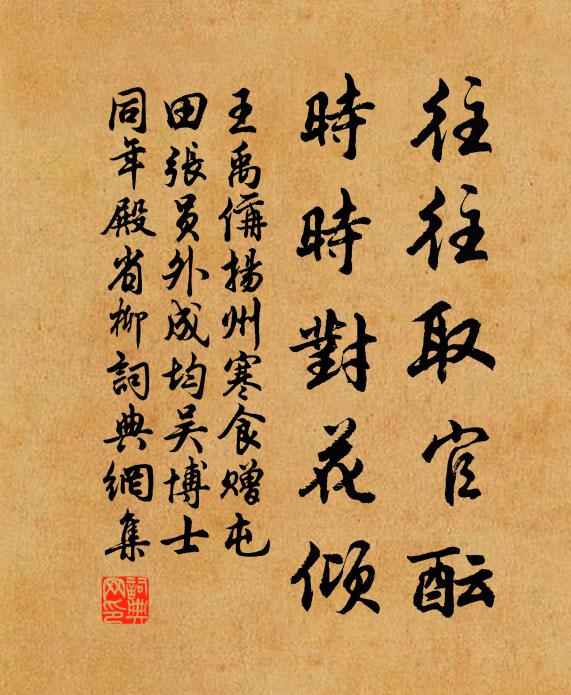 往往取官酝
時時對花傾
王禹偁揚州寒食赠屯
田張員外成均吴博士
同年殿省柳詞典網集
詞典
网印